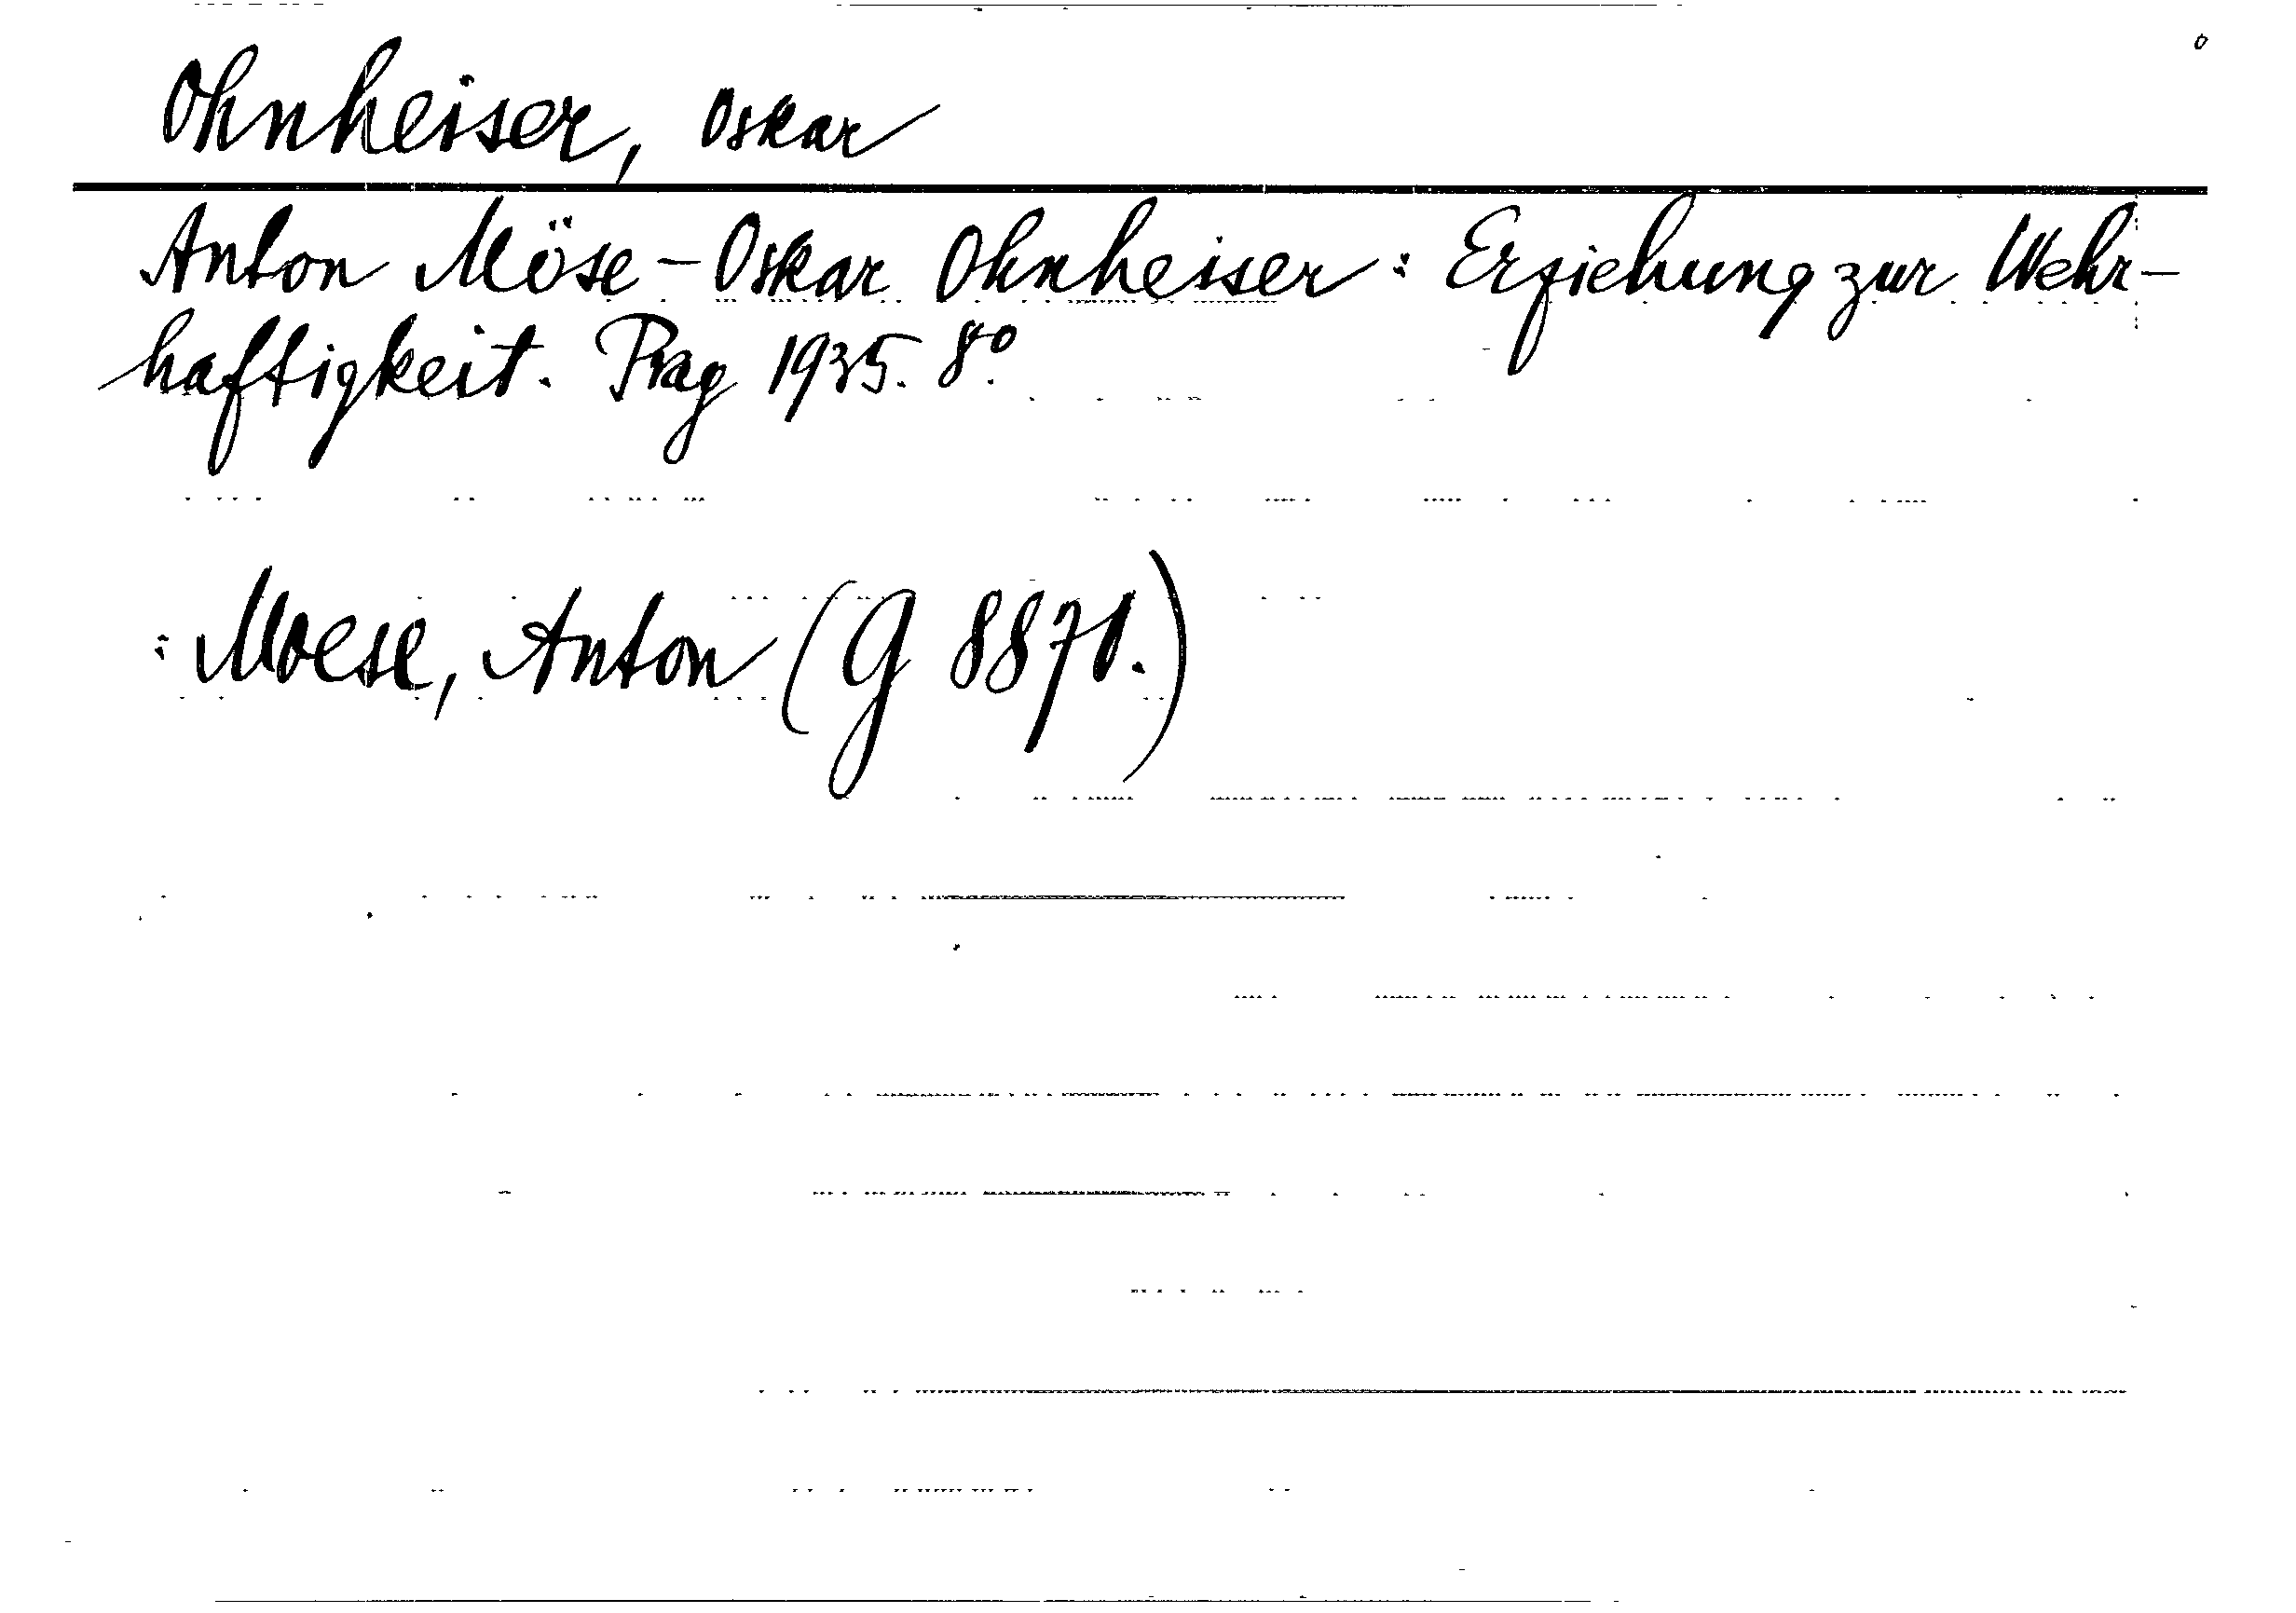 Ohnheiser, Oskar
Anton Möse - Oskar Ohnheiser: Erziehung zur Wehr-
haftigkeit. Prag 1935. 8°.
: Moese, Anton (G 8870.)